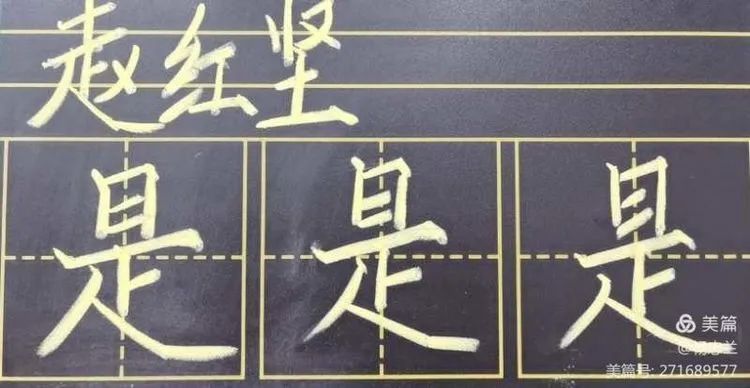 赵红坚
是 是 是
美篇
@杨志兰
美篇号: 271689577